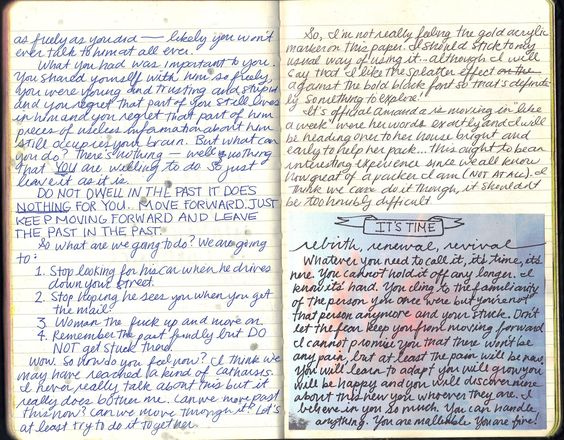 as freely as you did — likely you won't
ever talk to him at all ever.
What you had was important to you.
You shared yourself with him so freely,
you were young and trusting and stupid
and you regret that part of you still lives
in him and you regret that part of him
pieces of useless information about him
still occupies your brain. But what can
you do? There's nothing — well nothing
that YOU are willing to do so just
leave it as it is.
DO NOT DWELL IN THE PAST IT DOES
NOTHING FOR YOU. MOVE FORWARD. JUST
KEEP MOVING FORWARD AND LEAVE
THE PAST IN THE PAST.
So what are we going to do? We are going
to:
1. Stop looking for his car when he drives
down your street.
2. Stop hoping he sees you when you get
the mail.
3. Woman the fuck up and move on.
4. Remember the past fondly but DO
NOT get stuck there.
Wow. So how do you feel now? I think we
may have reached a kind of catharsis.
I never really talk about this but it
really does bother me. Can we move past
this now? Can we move through it? Let's
at least try to do it together.
So, I'm not really feeling the gold acrylic
marker on this paper. I should stick to my
usual way of using it - although I will
say that I like the splatter effect on the
against the bold black font so that's definite-
ly something to explore!
It's official amanda is moving in "like
a week" were her words exactly and I will
be heading over to her house bright and
early to help her pack... This ought to be an
interesting experience since we all know
how great of a packer I am (NOT AT ALL). I
think we can do it though, it shouldn't
be too horribly difficult
IT'S TIME
rebirth, renewal, revival
Whatever you need to call it, it's time, it's
here. You cannot hold it off any longer. I
know it's hard. You cling to the familiarity
of the person you once were but you're not
that person anymore and your stuck. Don't
let the fear keep you from moving forward
I cannot promise you that there won't be
any pain, but at least the pain will be new.
You will learn to adapt you will grow you
will be happy and you will discover more
about this new you wherever they are. I
believe in you so much. You can handle
anything. You are malleable You are fire!